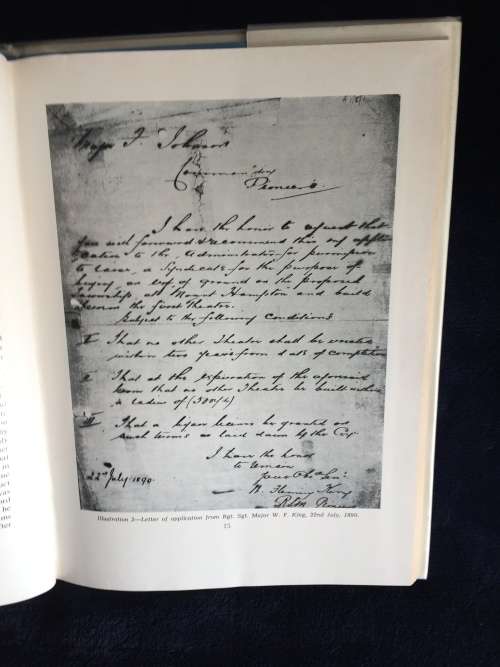 Major F. Johnson
Commanding
Pioneers.
I have the honor to request that
you will forward & recommend this my
to the Administrator for permission
to a Syndicate for the purpose of
buying or of ground on the proposed
Township at Mount Hampton and build
the first Theatre.
Subject to the following conditions
I That no other Theatre shall be erected
within two years from date of completion
II That at the expiration of the aforesaid
term that no other Theatre be built within
a radius of (300
III That a be granted on
such terms as laid down by the Coy
I have the honor
to remain
Your Obt Ser.
W. Henry King
RSM Pioneers
22nd July 1890.
Illustration 3—Letter of application from Rgt. Sgt. Major W. F. King, 22nd July, 1890.
15